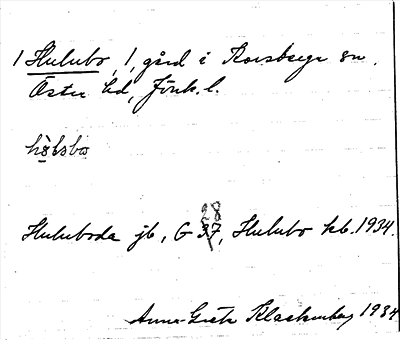 1 Hulubo, 1, gård i Korsberga sn.
Öster hd, Jönk. l.
Huluboda jb, G 28 37, Hulubo kb. 1934.
Anna-Greta Klackenberg 1934